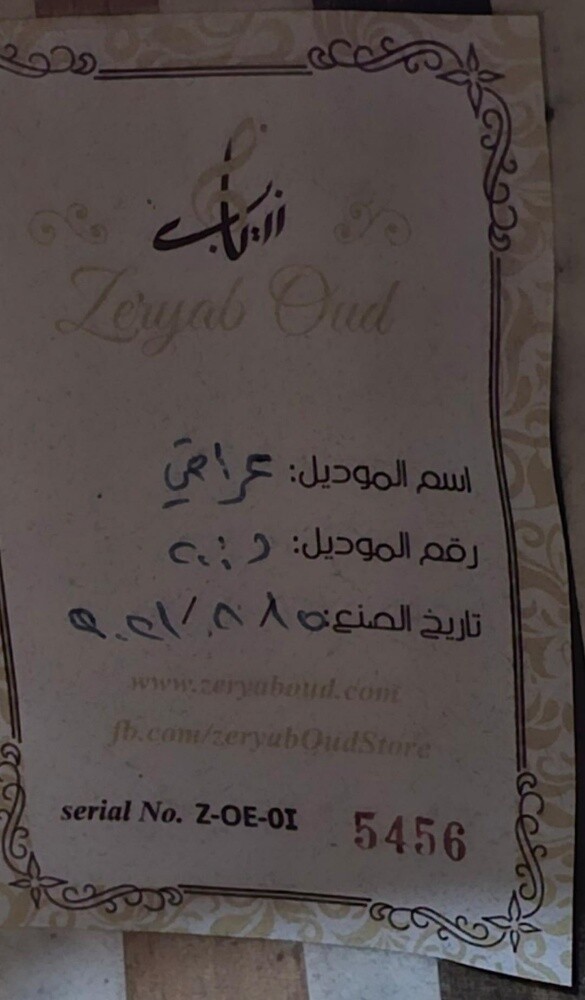 زرياب
Zeryab Oud
اسم الموديل: عراقي
رقم الموديل:
تاريخ الصنع:
www.zeryaboud.com
fb.com/zeryabOudStore
serial No. Z-OE-01 5456